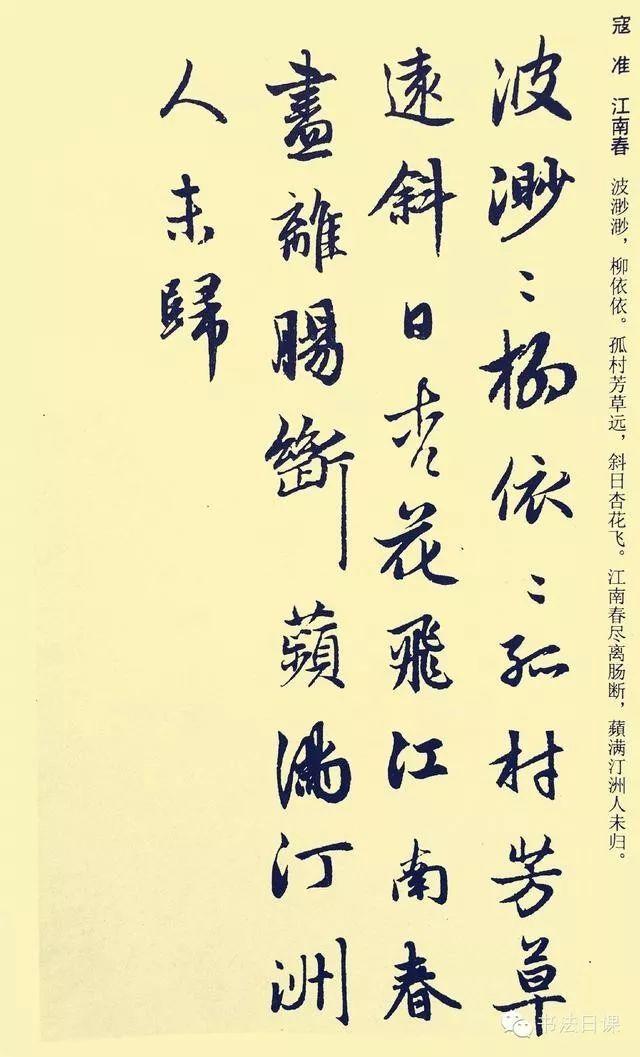 寇准 江南春 波渺渺，柳依依。孤村芳草远，斜日杏花飞。江南春尽离肠断，蘋满汀洲人未归。
波渺〻柳依〻孤村芳草
遠斜日杏花飛江南春
盡離腸斷蘋滿汀洲
人未歸
书法日课